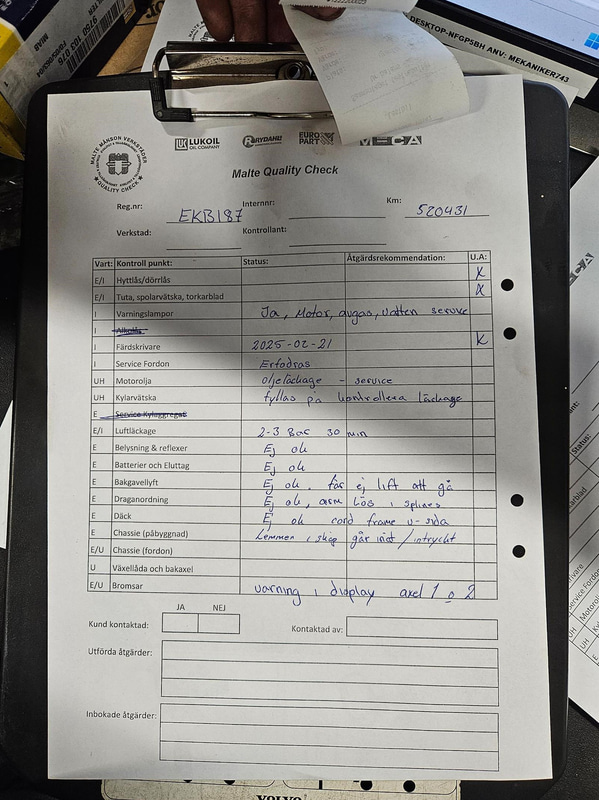 DESKTOP-NFGP5BH ANV: MEKANIKER743
MALTE MÅNSON VERKSTÄDER
QUALITY CHECK
LUKOIL
OIL COMPANY
RYDAHLS
EURO
PART
MECA
Malte Quality Check
Reg.nr: EKB187 Internnr: Km: 520431
Verkstad: Kontrollant:
Vart: Kontroll punkt: Status: Åtgärdsrekommendation: U.A:
E/I Hyttlås/dörrlås X
E/I Tuta, spolarvätska, torkarblad X
I Varningslampor Ja, Motor, avgas, vatten service
I Alkolås
I Färdskrivare 2025-02-21 X
I Service Fordon Erfodras
UH Motorolja oljeläckage - service
UH Kylarvätska fyllas på kontrollera läckage
E Service Kylaggregat
E/I Luftläckage 2-3 Bar 30 min
E Belysning & reflexer Ej ok
E Batterier och Eluttag Ej ok
E Bakgavellyft Ej ok. får ej lift att gå
E Draganordning Ej ok, arm lös i splines
E Däck Ej ok cord framme v-sida
E Chassie (påbyggnad) Lemmen i skåp går inåt / intryckt
E/U Chassie (fordon)
U Växellåda och bakaxel
E/U Bromsar varning i display axel 1 o 2
JA NEJ
Kund kontaktad: Kontaktad av:
Utförda åtgärder:
Inbokade åtgärder:
VOLVO